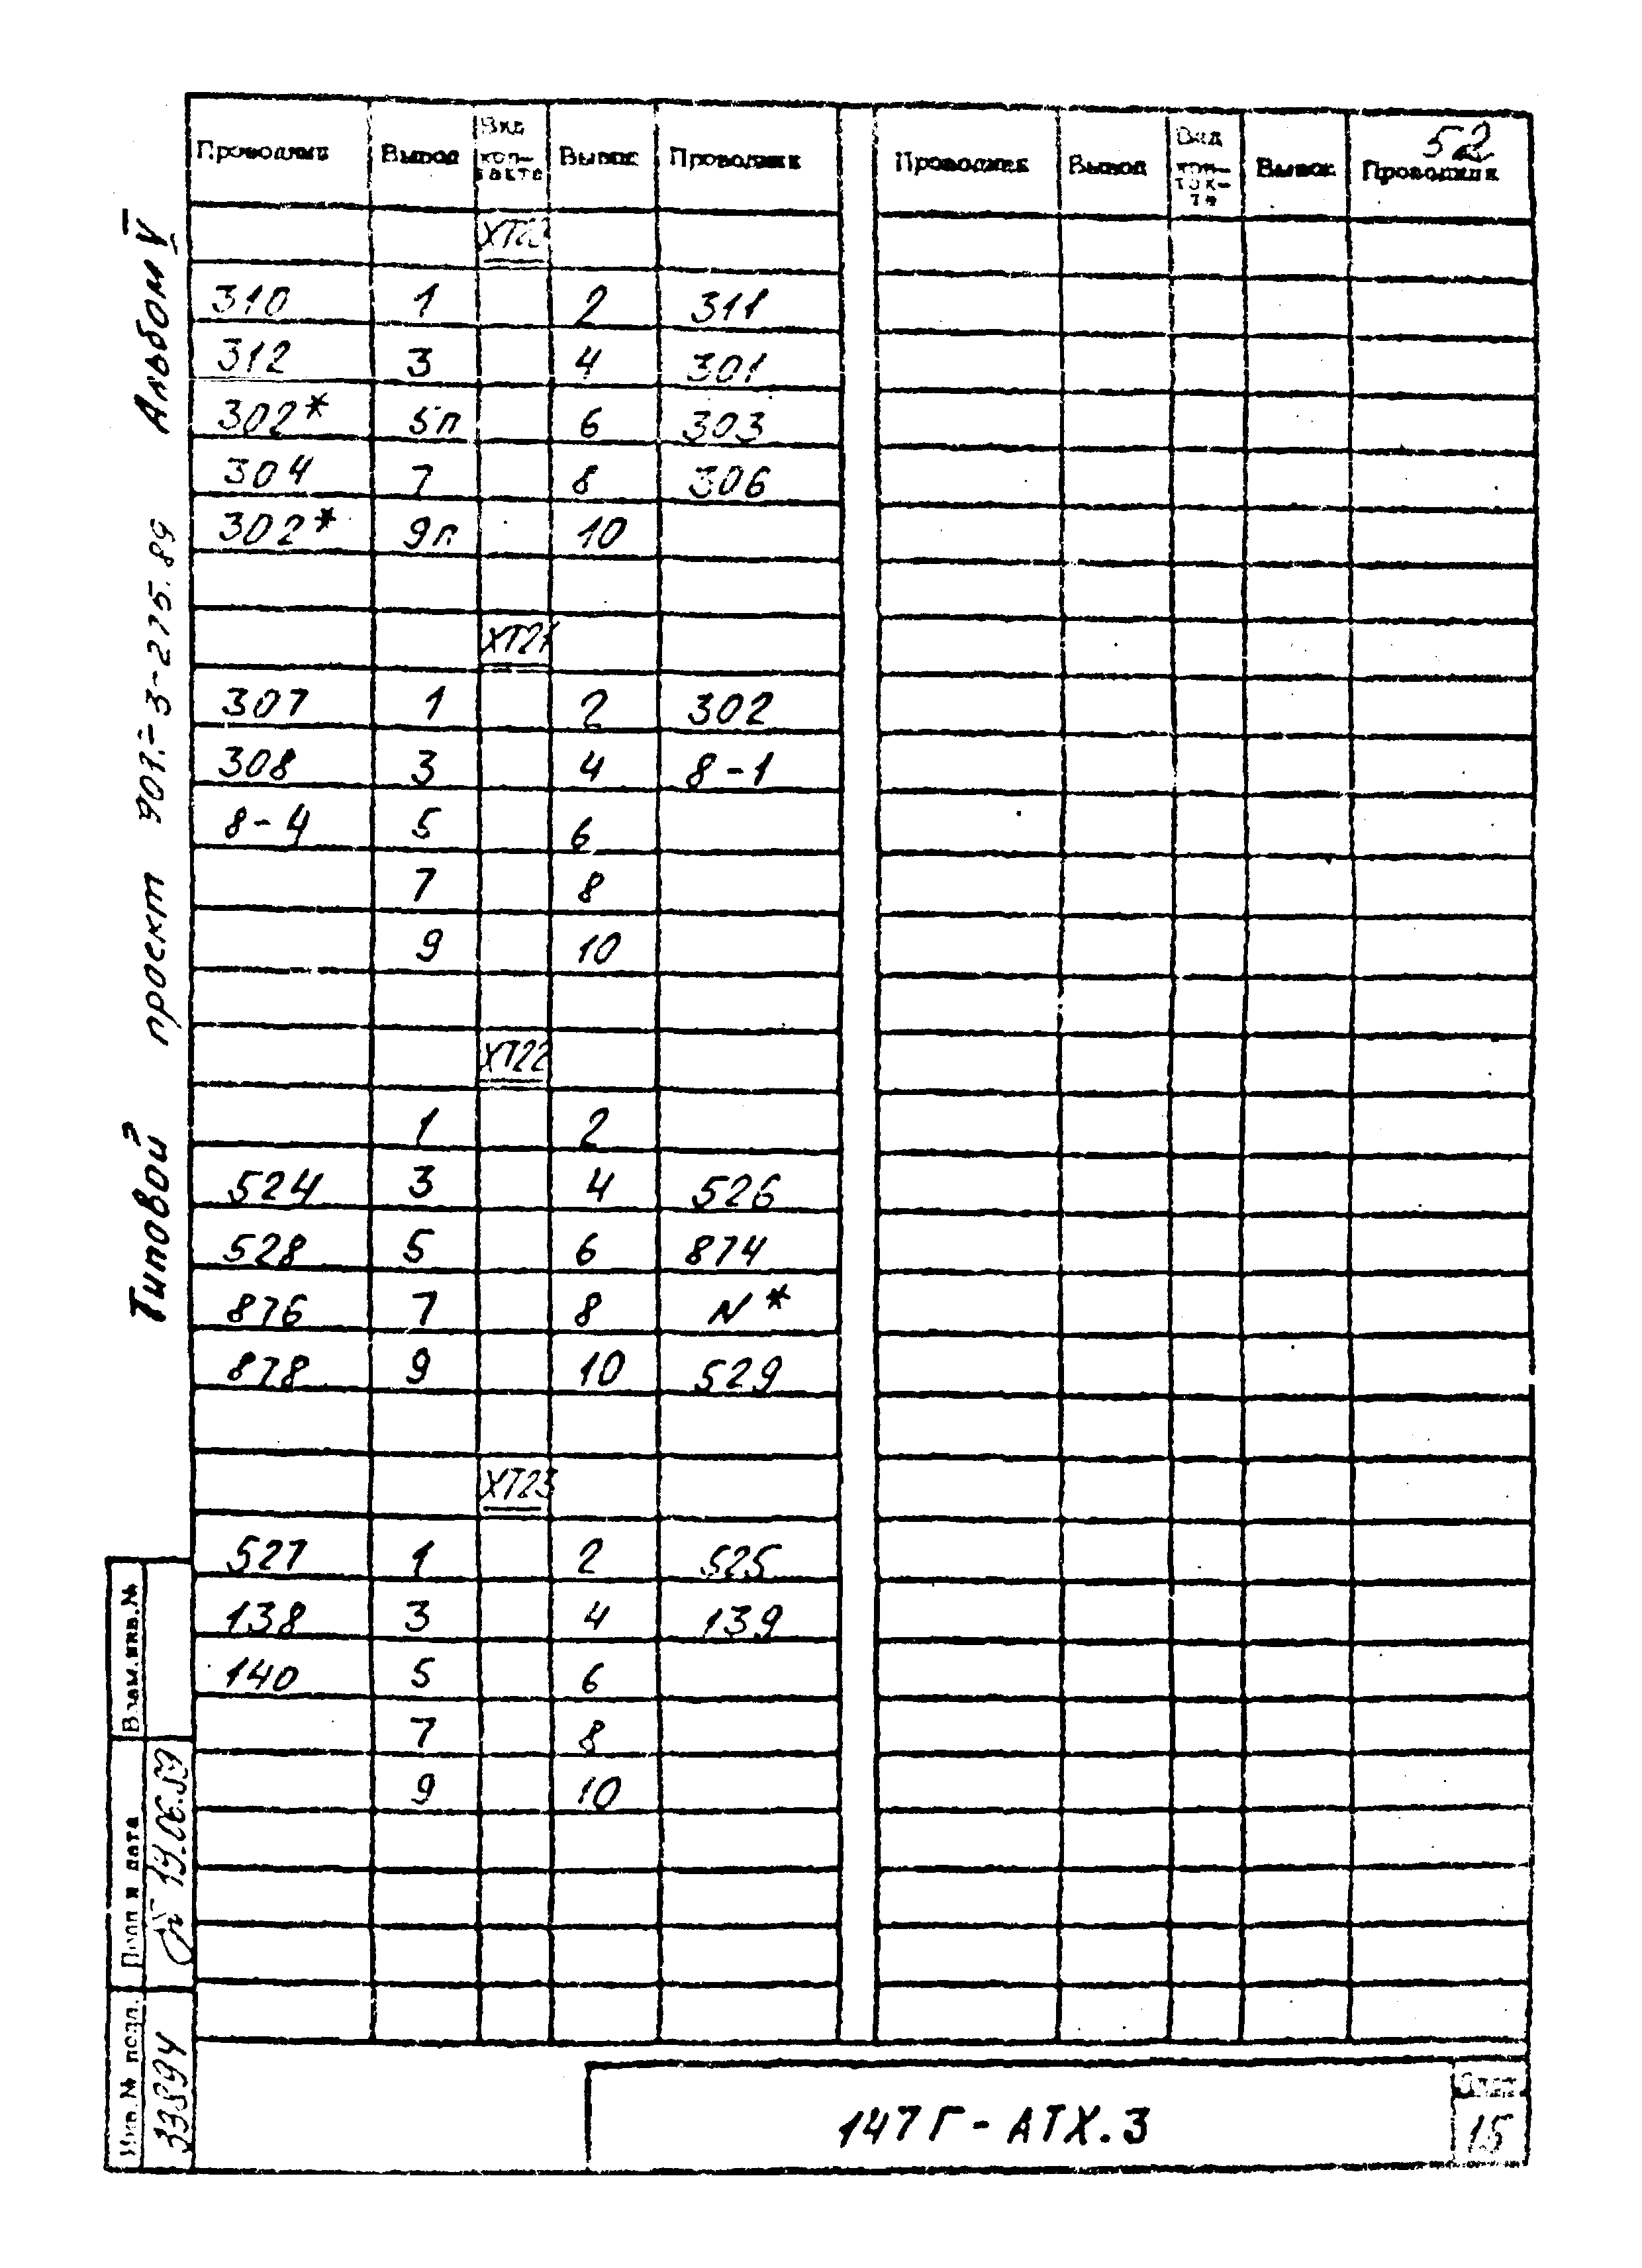 52
Проводник Вывод Вид контакта Вывод Проводник Проводник Вывод Вид контакта Вывод Проводник
310 1 2 311
312 3 4 301
302* 5п 6 303
304 7 8 306
302* 9п 10
XT21
307 1 2 302
308 3 4 8-1
8-4 5 6
7 8
9 10
XT22
1 2
524 3 4 526
528 5 6 874
876 7 8 N*
878 9 10 529
XT23
527 1 2 525
138 3 4 139
140 5 6
7 8
9 10
147Г-АТХ.3
Лист
15
Типовой проект 901-3-275.89 Альбом V
Взам.инв.№
Подп и дата
19.06.89
Инв.№ подл.
33894